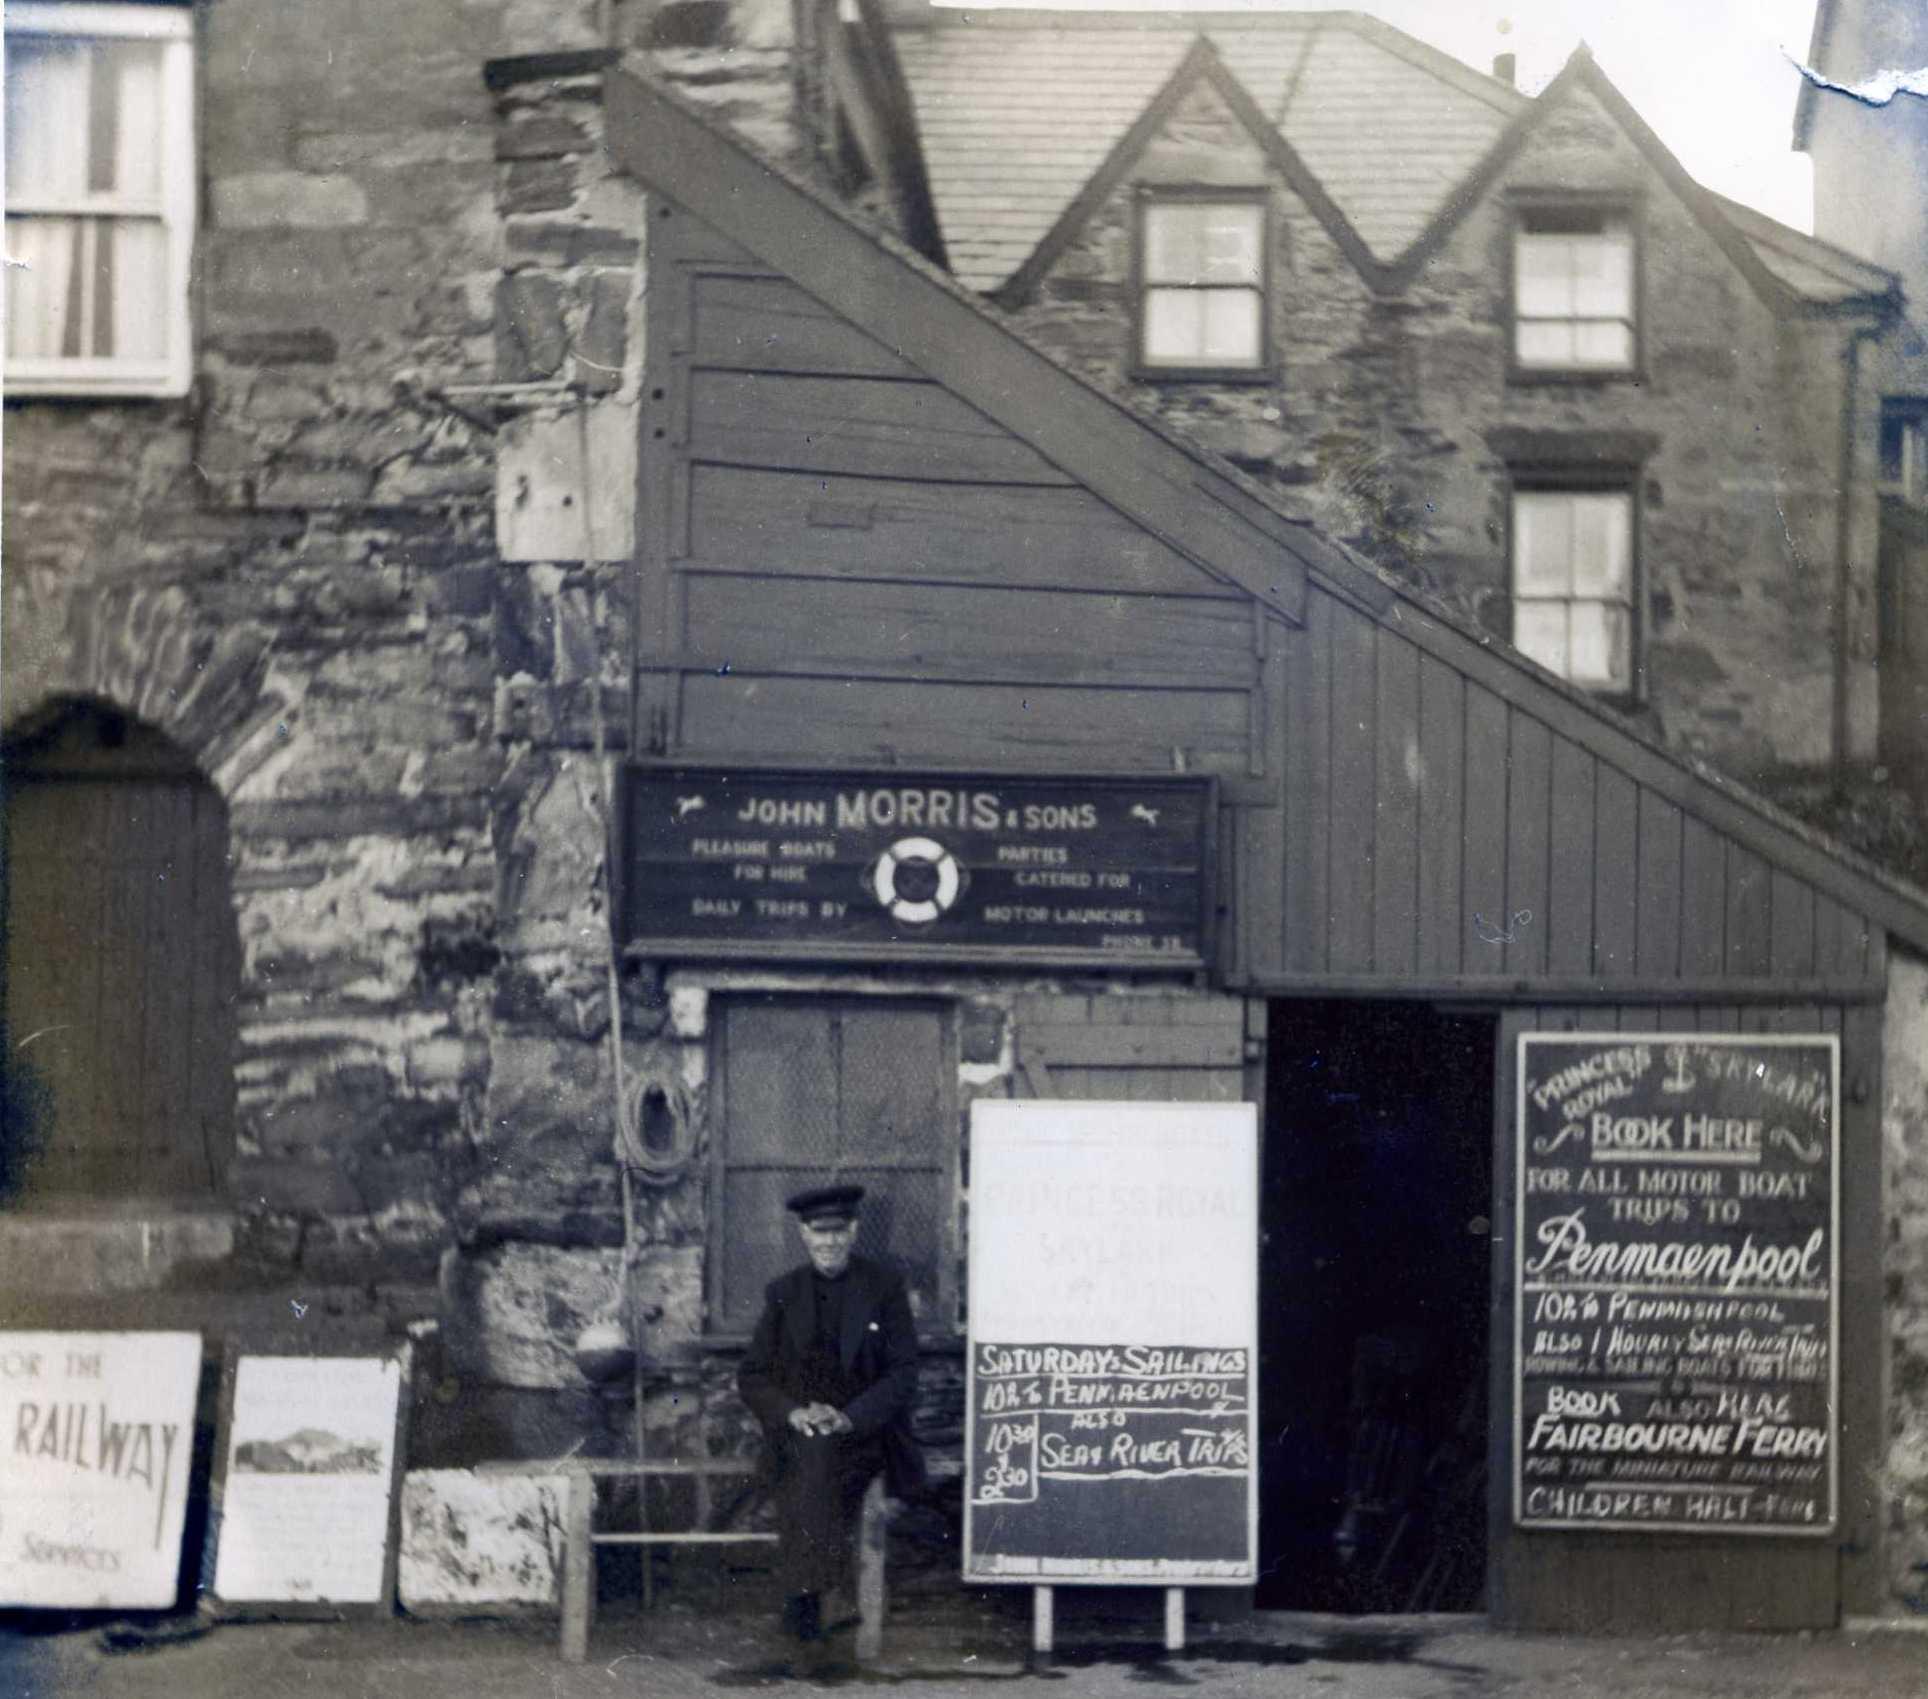 JOHN MORRIS & SONS
PLEASURE BOATS
FOR HIRE
DAILY TRIPS BY
PARTIES
CATERED FOR
MOTOR LAUNCHES
PHONE
FOR THE
RAILWAY
SERVICES
PRINCESS ROYAL
SKYLARK
SATURDAYS SAILINGS
10AM TO PENMAENPOOL
ALSO
10 30
&
2 30
SEA & RIVER TRIPS
JOHN MORRIS & SONS
"PRINCESS ROYAL"
"SKYLARK"
BOOK HERE
FOR ALL MOTOR BOAT
TRIPS TO
Penmaenpool
TO PENMAENPOOL
ALSO 1 HOURLY SEA & RIVER TRIPS
ROWING & SAILING BOATS FOR HIRE
BOOK ALSO HERE
FAIRBOURNE FERRY
FOR THE MINIATURE RAILWAY
CHILDREN HALF-FARE